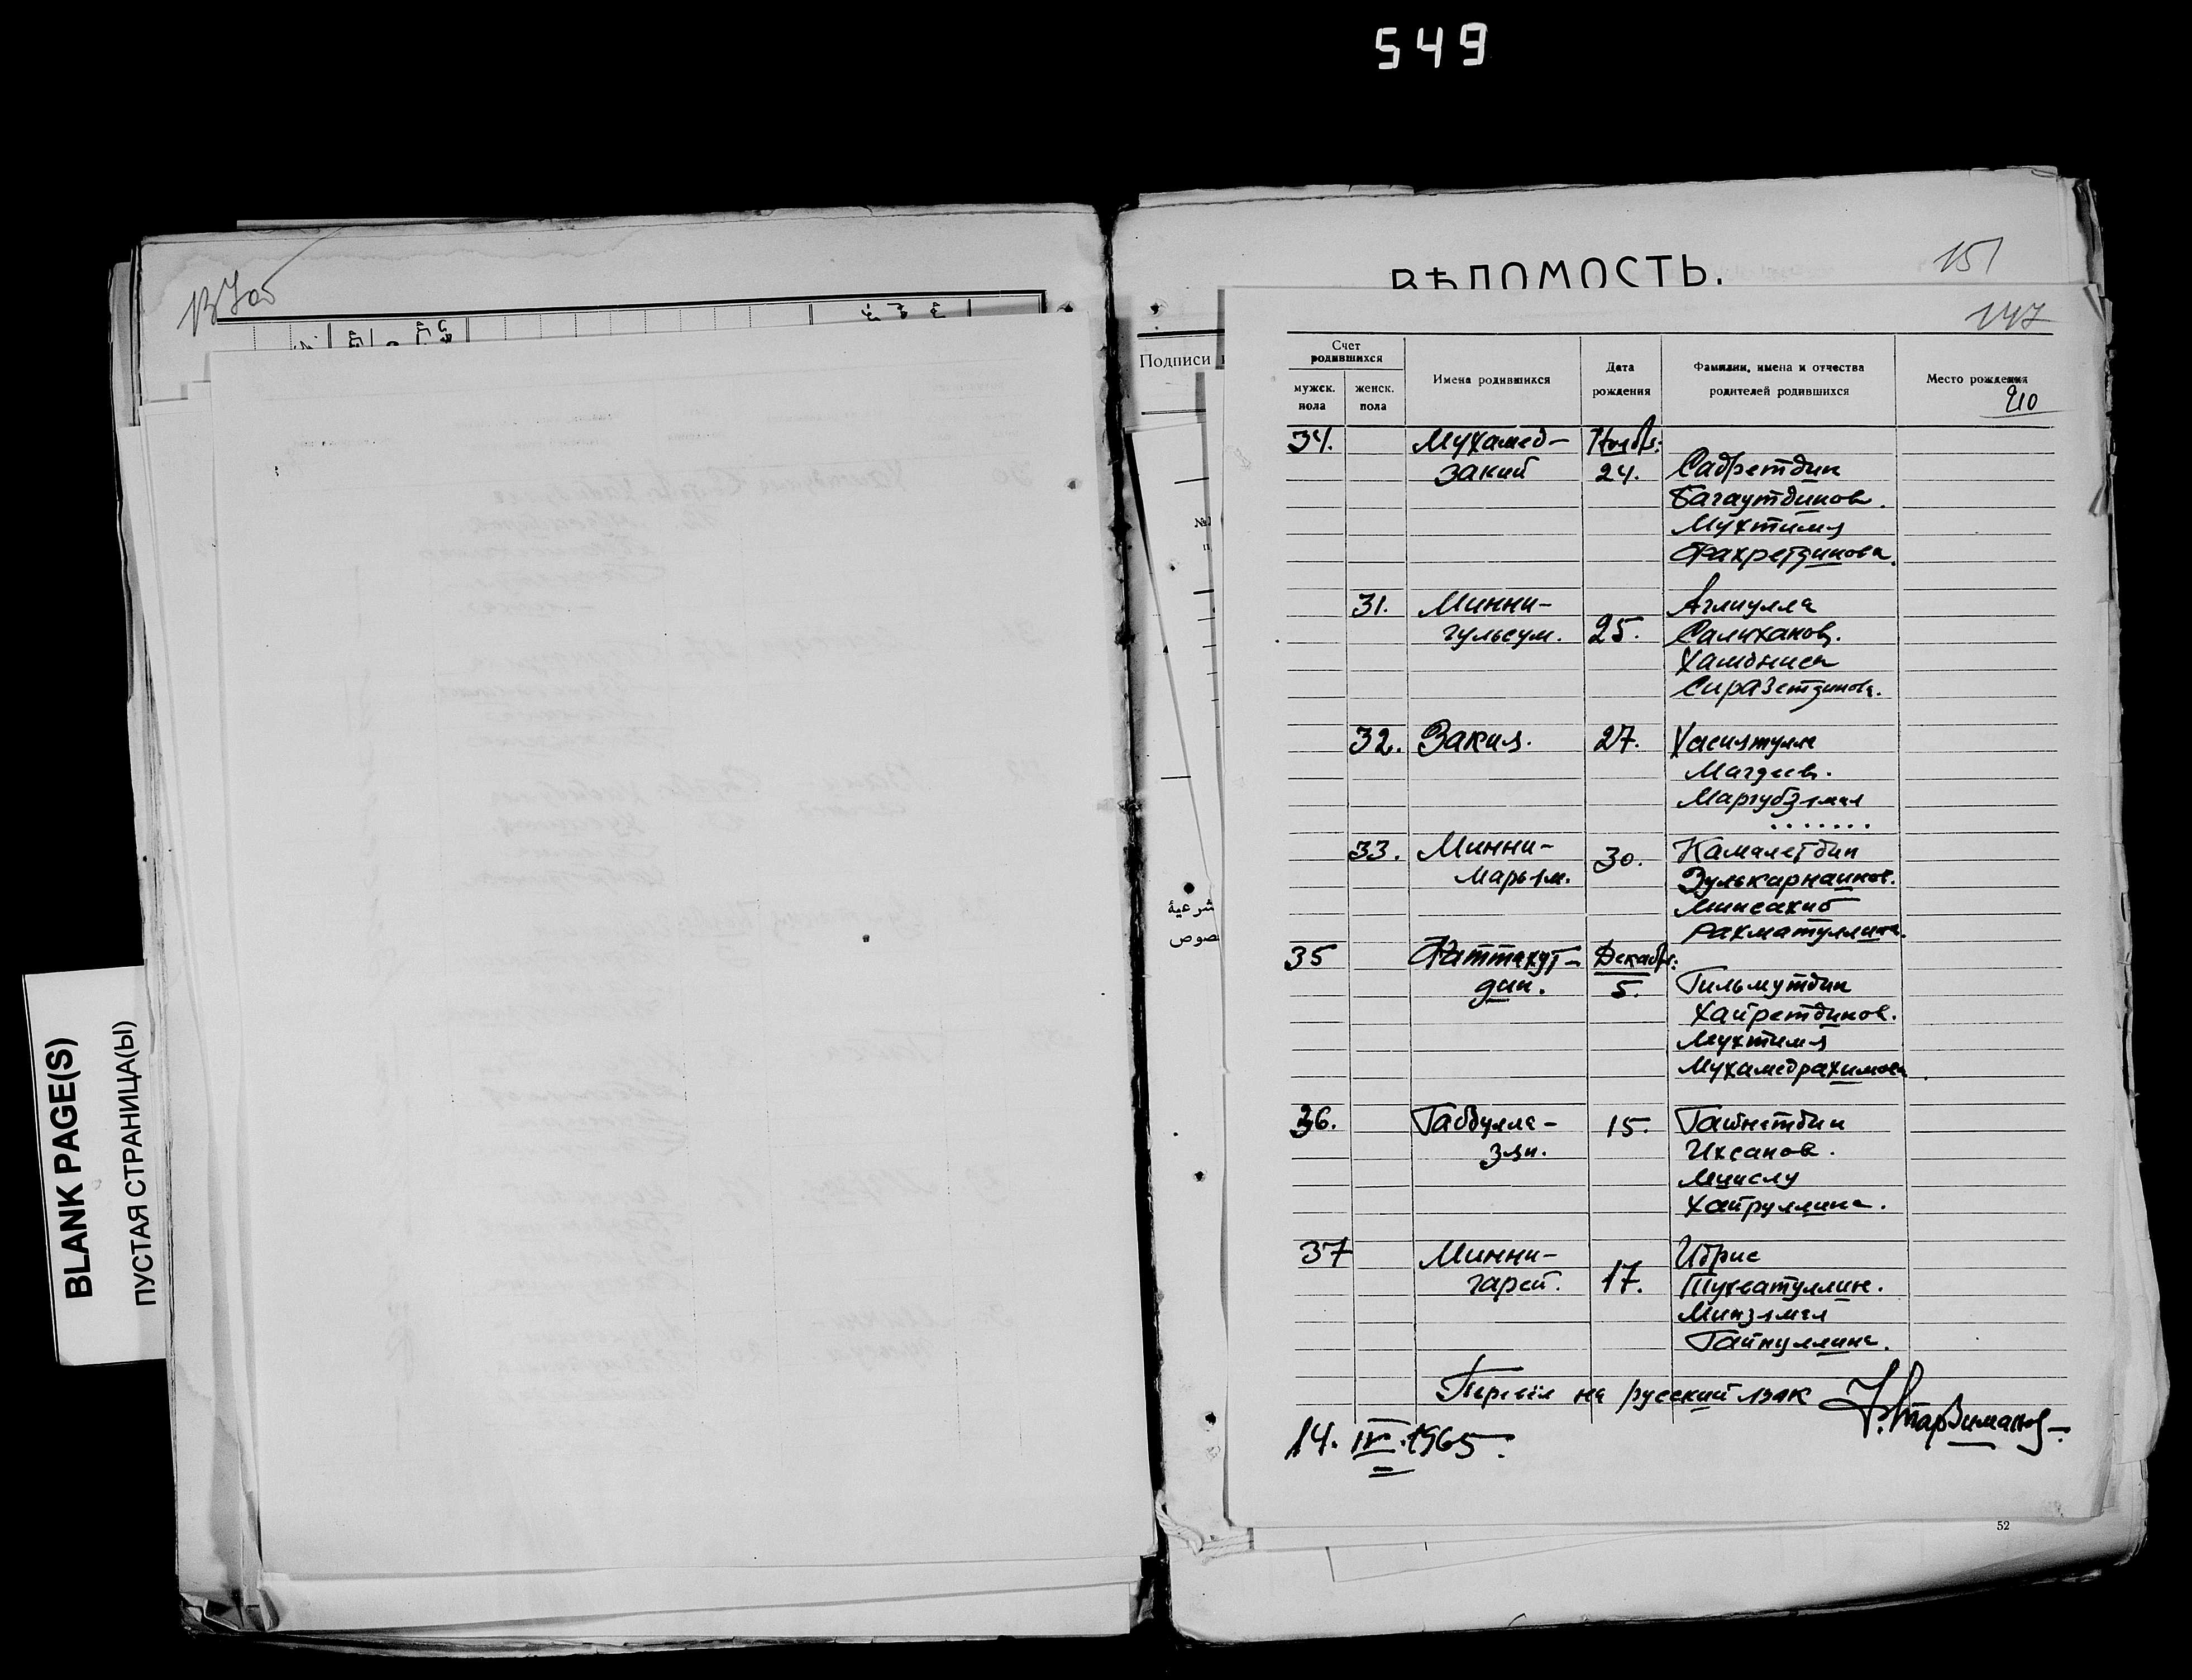 549
ВѢДОМОСТЬ.
151
147
Подписи
BLANK PAGE(S)
ПУСТАЯ СТРАНИЦА(Ы)
شرعية
Счет родившихся
мужск. пола
женск. пола
Имена родившихся
Дата рождения
Фамилии, имена и отчества родителей родившихся
Место рождения
34. Мухамед- Ноябрь:
закий 24. Садретдин
Багаутдинов.
Мухтимя
Фахретдинова.
31. Минни- Аглиулла
гульсум. 25. Салиханов.
Хамдниса
Сиразетдинова.
32. Закия. 27. Хасиятулла
Магдеев.
Маргубзямал
.......
33. Минни- 30. Камалетдин
Марьям. Зулькарнаинов.
Минсахиб
Рахматуллина.
35 Фаттахут- Декабрь:
дин. 5. Гильмутдин
Хайретдинов.
Мухтимя
Мухамедрахимова.
36. Габдулла- 15. Гайнетдин
зян. Ихсанов.
Минслу
Хайруллина.
37 Минни- Идрис
гарей. 17. Шухватуллин.
Минзямал
Гайнуллина.
Перевёл на русский язык
14. IV. 1965.
52